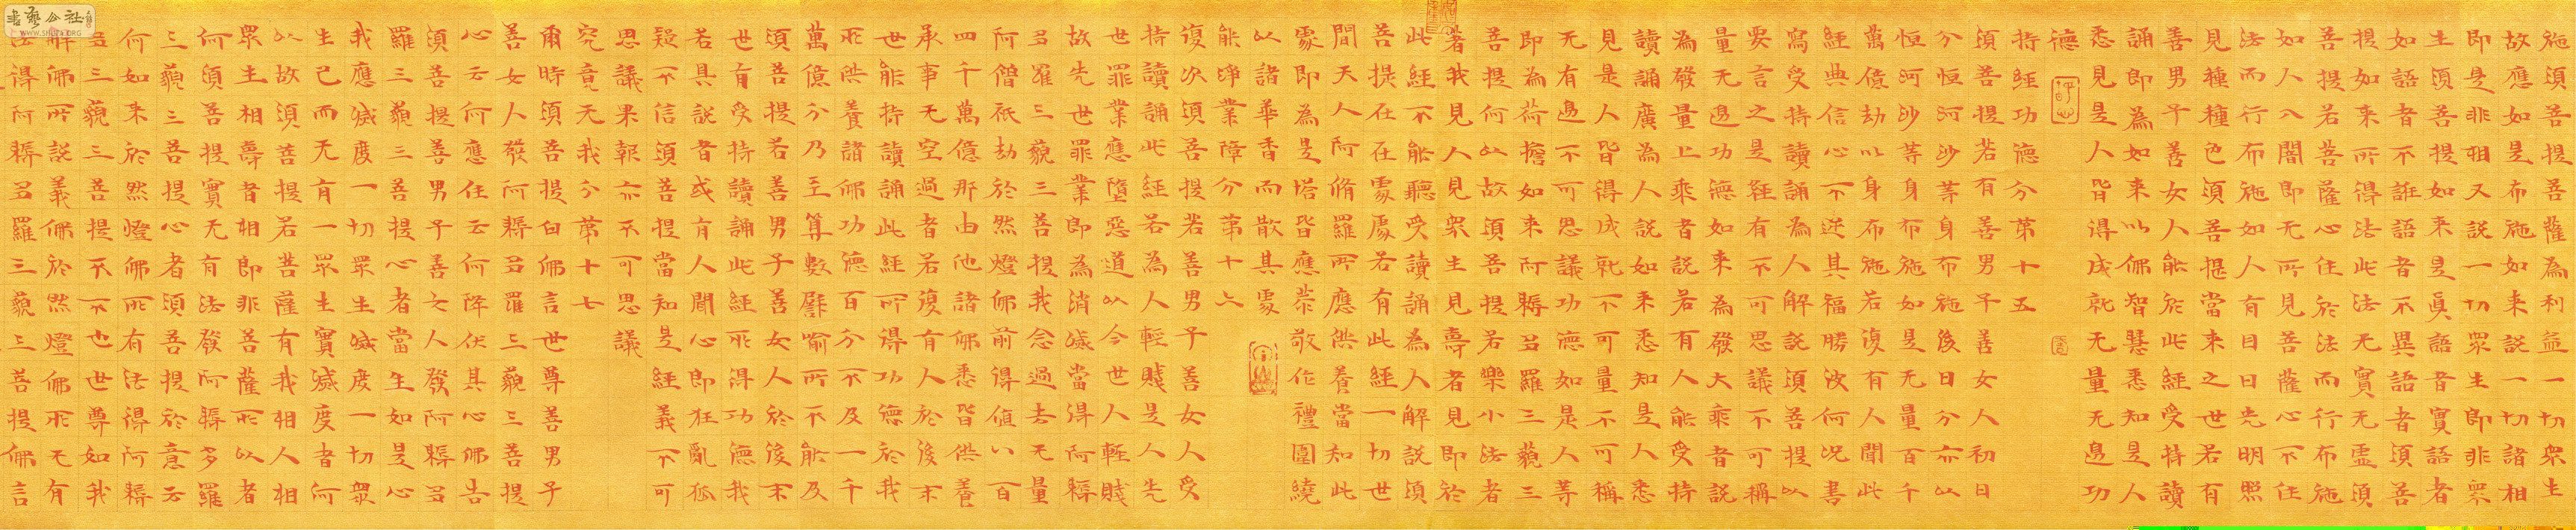 施須菩提菩薩為利益一切眾生
故應如是布施如來說一切諸相
即是非相又說一切眾生即非眾
生須菩提如來是真語者實語者
如語者不誑語者不異語者須菩
提如來所得法此法无實无虛須
菩提若菩薩心住於法而行布施
如人入闇即无所見菩薩心不住
法而行布施如人有目日光明照
見種種色須菩提當來之世若有
善男子善女人能於此經受持讀
誦即為如來以佛智慧悉知是人
悉見是人皆得成就无量无邊功
德
持經功德分第十五
須菩提若有善男子善女人初日
分恒河沙等身布施後日分亦以
恒河沙等身布施如是无量百千
萬億劫以身布施若復有人聞此
經典信心不逆其福勝彼何況書
寫受持讀誦為人解說須菩提以
要言之是經有不可思議不可稱
量无邊功德如來為發大乘者說
為發量上乘者說若有人能受持
讀誦廣為人說如來悉知是人悉
見是人皆得成就不可量不可稱
无有邊不可思議功德如是人等
即為荷擔如來阿耨多羅三藐三
菩提何以故須菩提若樂小法者
著我見人見眾生見壽者見即於
此經不能聽受讀誦為人解說須
菩提在在處處若有此經一切世
間天人阿脩羅所應供養當知此
處即為是塔皆應恭敬作禮圍繞
以諸華香而散其處
能淨業障分第十六
復次須菩提若善男子善女人受
持讀誦此經若為人輕賤是人先
世罪業應墮惡道以今世人輕賤
故先世罪業即為消滅當得阿耨
多羅三藐三菩提我念過去无量
阿僧祇劫於然燈佛前得值八百
四千萬億那由他諸佛悉皆供養
承事无空過者若復有人於後末
世能持讀誦此經所得功德於我
所供養諸佛功德百分不及一千
萬億分乃至算數譬喻所不能及
須菩提若善男子善女人於後末
世有受持讀誦此經所得功德我
若具說者或有人聞心即狂亂狐
疑不信須菩提當知是經義不可
思議果報亦不可思議
究竟无我分第十七
爾時須菩提白佛言世尊善男子
善女人發阿耨多羅三藐三菩提
心云何應住云何降伏其心佛告
須菩提善男子善女人發阿耨多
羅三藐三菩提心者當生如是心
我應滅度一切眾生滅度一切眾
生已而无有一眾生實滅度者何
以故須菩提若菩薩有我相人相
眾生相壽者相即非菩薩所以者
何須菩提實无有法發阿耨多羅
三藐三菩提心者須菩提於意云
何如來於然燈佛所有法得阿耨
多三藐三菩提不不也世尊如我
解佛所說義佛於然燈佛所无有
法得阿耨多羅三藐三菩提佛言
書藝公社
WWW.SHUYA.ORG